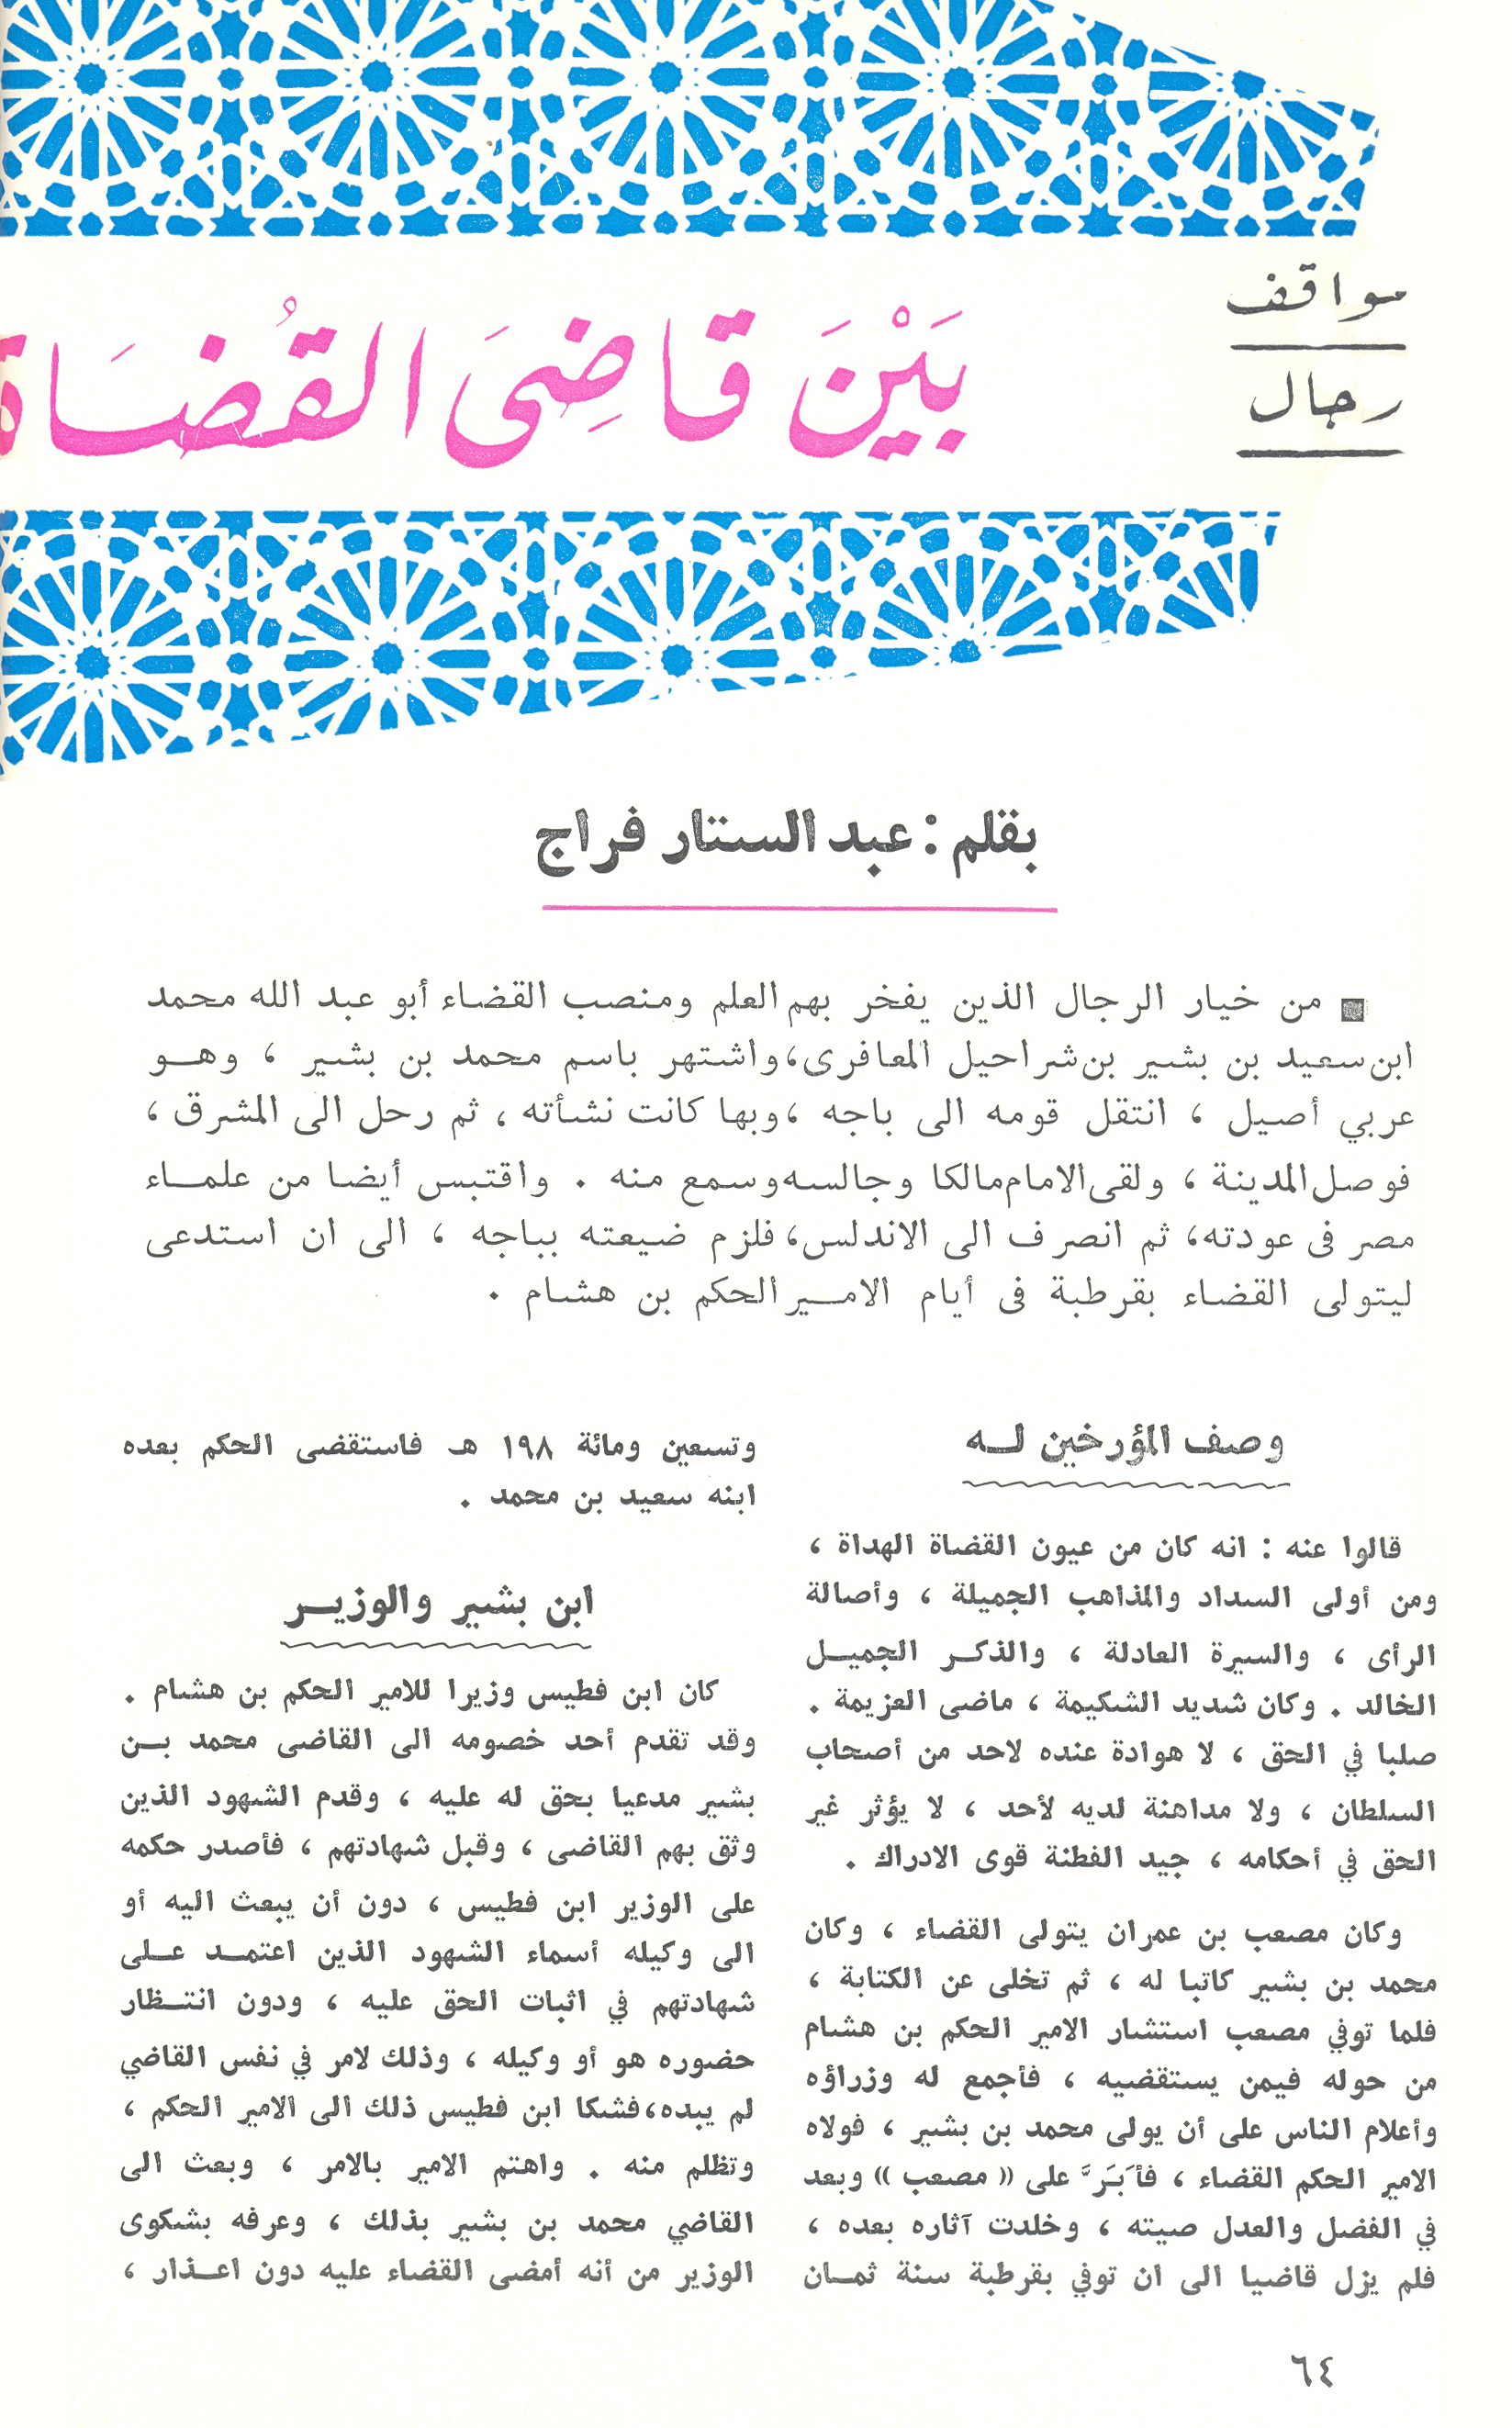 مواقف
رجال
بَيْنَ قَاضِى القُضَاة
بقلم : عبد الستار فراج
من خيار الرجال الذين يفخر بهم العلم ومنصب القضاء أبو عبد الله محمد
ابن سعيد بن بشير بن شراحيل المعافرى، واشتهر باسم محمد بن بشير ، وهـو
عربي أصيل ، انتقل قومه الى باجه ، وبها كانت نشأته ، ثم رحل الى المشرق ،
فوصل المدينة ، ولقى الامام مالكا وجالسه وسمع منه . واقتبس أيضا من علمـاء
مصر فى عودته، ثم انصرف الى الاندلس، فلزم ضيعته بباجه ، الى ان استدعى
ليتولى القضاء بقرطبة فى أيام الامـير الحكم بن هشام .
وصف المؤرخين لـه
قالوا عنه : انه كان من عيون القضاة الهداة ،
ومن أولى السداد والمذاهب الجميلة ، وأصالة
الرأى ، والسيرة العادلة ، والذكـر الجميـل
الخالد . وكان شديد الشكيمة ، ماضى العزيمة .
صلبا في الحق ، لا هوادة عنده لاحد من أصحاب
السلطان ، ولا مداهنة لديه لأحد ، لا يؤثر غير
الحق في أحكامه ، جيد الفطنة قوى الادراك .
وكان مصعب بن عمران يتولى القضاء ، وكان
محمد بن بشير كاتبا له ، ثم تخلى عن الكتابة ،
فلما توفي مصعب استشار الامير الحكم بن هشام
من حوله فيمن يستقضيه ، فأجمع له وزراؤه
وأعلام الناس على أن يولى محمد بن بشير ، فولاه
الامير الحكم القضاء ، فأَبَرَّ على (( مصعب )) وبعد
في الفضل والعدل صيته ، وخلدت آثاره بعده ،
فلم يزل قاضيا الى ان توفي بقرطبة سنة ثمـان
وتسعين ومائة ١٩٨ هـ فاستقضى الحكم بعده
ابنه سعيد بن محمد .
ابن بشير والوزيـر
كان ابن فطيس وزيرا للامير الحكم بن هشام .
وقد تقدم أحد خصومه الى القاضى محمد بـن
بشير مدعيا بحق له عليه ، وقدم الشهود الذين
وثق بهم القاضى ، وقبل شهادتهم ، فأصدر حكمه
على الوزير ابن فطيس ، دون أن يبعث اليه أو
الى وكيله أسماء الشهود الذين اعتمـد عـلى
شهادتهم في اثبات الحق عليه ، ودون انتـظار
حضوره هو أو وكيله ، وذلك لامر في نفس القاضي
لم يبده، فشكا ابن فطيس ذلك الى الامير الحكم ،
وتظلم منه . واهتم الامير بالامر ، وبعث الى
القاضي محمد بن بشير بذلك ، وعرفه بشكوى
الوزير من أنه أمضى القضاء عليه دون اعـذار ،
٦٤